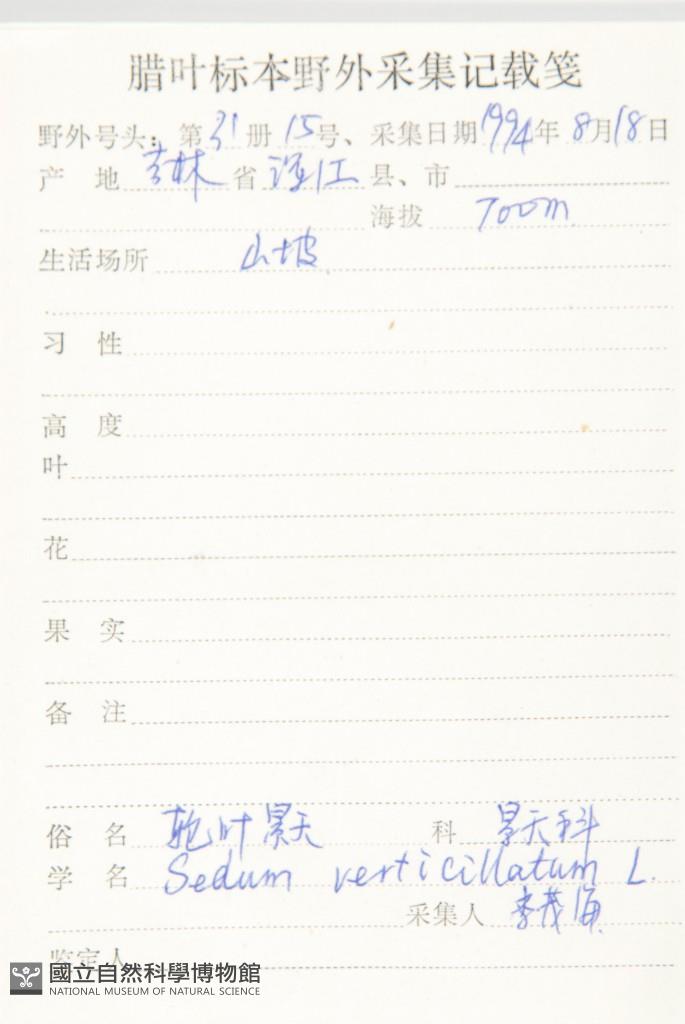 腊叶标本野外采集记载笺
野外号头: 第31册 15号、采集日期1994年8月18日
产 地 吉林省浑江县、市
海拔 700m
生活场所 山坡
习 性
高 度
叶
花
果 实
备 注
俗 名 轮叶景天 科 景天科
学 名 Sedum verticillatum L.
采集人 李茂海
鉴定人
國立自然科學博物館
NATIONAL MUSEUM OF NATURAL SCIENCE